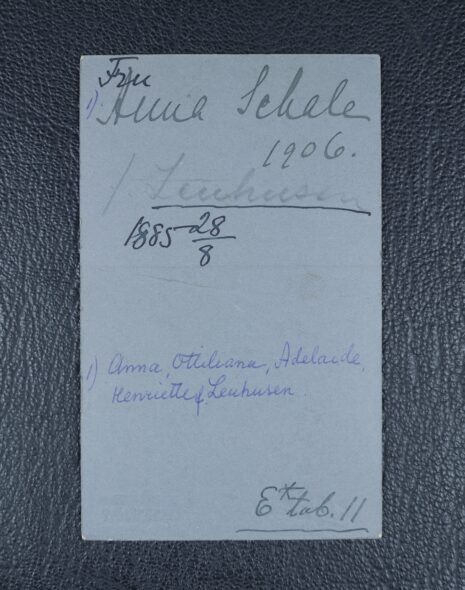 Fru
1) Anna Schale
1906.
/ Leuhusen
1885 28/8
1) Anna, Ottiliana, Adelaide,
Henriette f. Leuhusen.
E* tab. 11